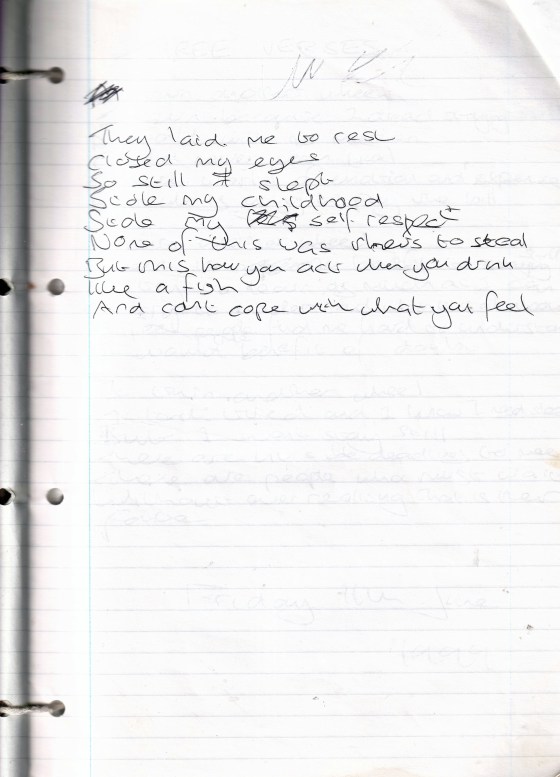 They laid me to rest
Closed my eyes
So still I slept
Stole my childhood
Stole my self respect
None of this was theirs to steal
But this how you act when you drink
like a fish
And cant cope with what you feel